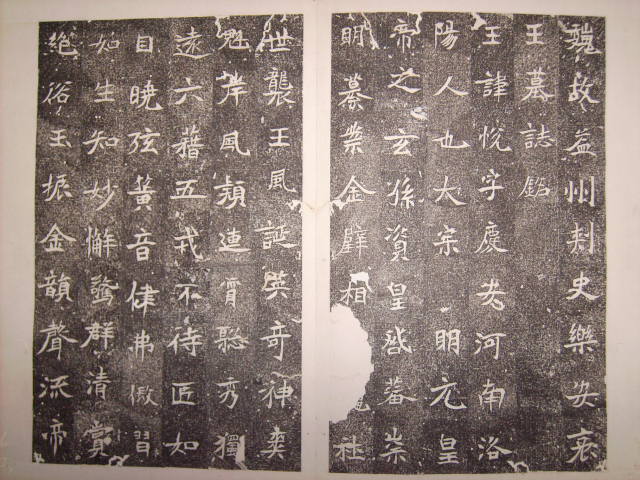 魏故益州刺史樂安哀
王墓誌銘
王諱悅字慶安河南洛
陽人也大宗明元皇
帝之玄孫資皇蕃崇
明金璧相社
世襲王風誕英奇神爽
魁岸風穎連霄聡秀獨
遠六藉五戎不待匠如
自曉弦簧音律弗儌習
如生知妙懈發群清賞
絕俗玉振金韻聲流帝